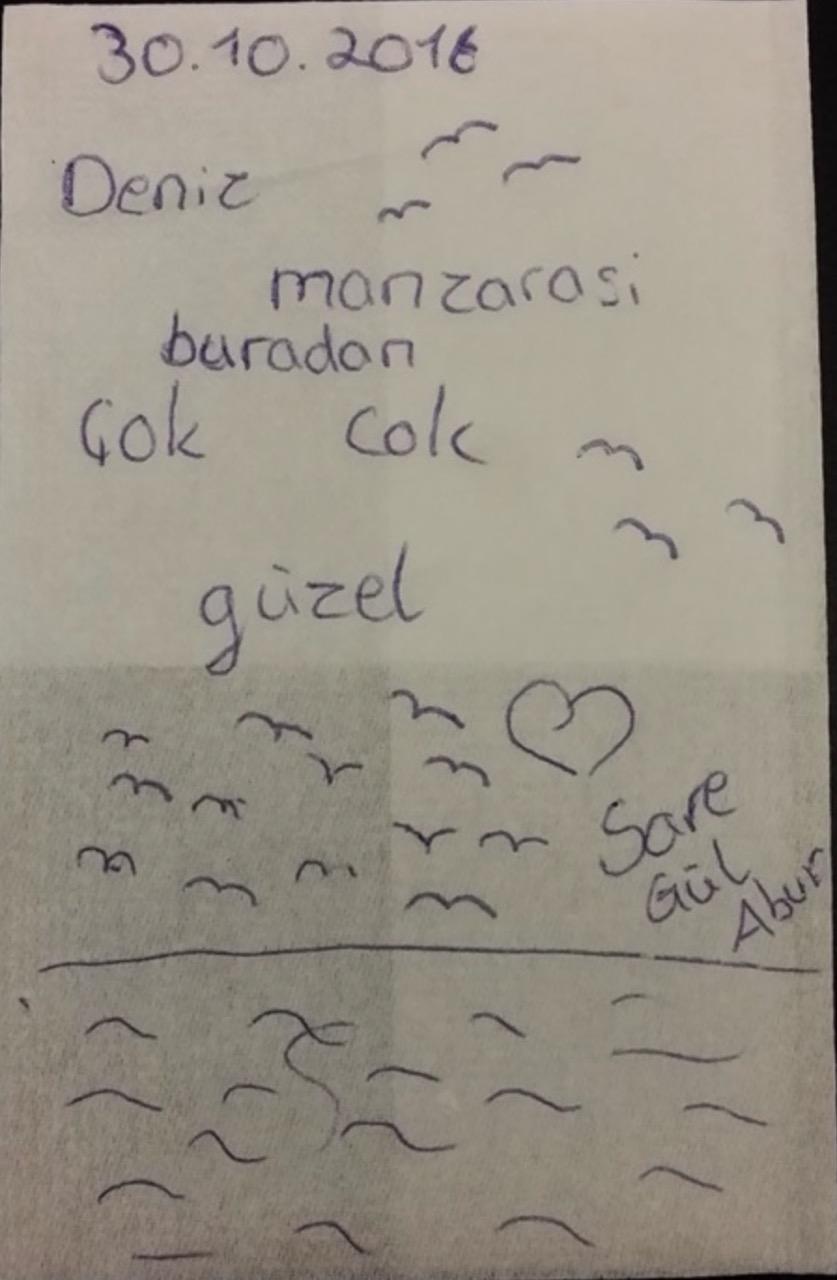 30.10.2016
Deniz
manzarasi
buradan
Çok Cok
güzel
Sare
Gül